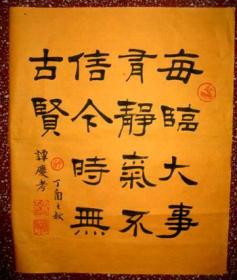 每臨大事
有靜氣不
信今時無
古賢
丁酉之秋
譚慶